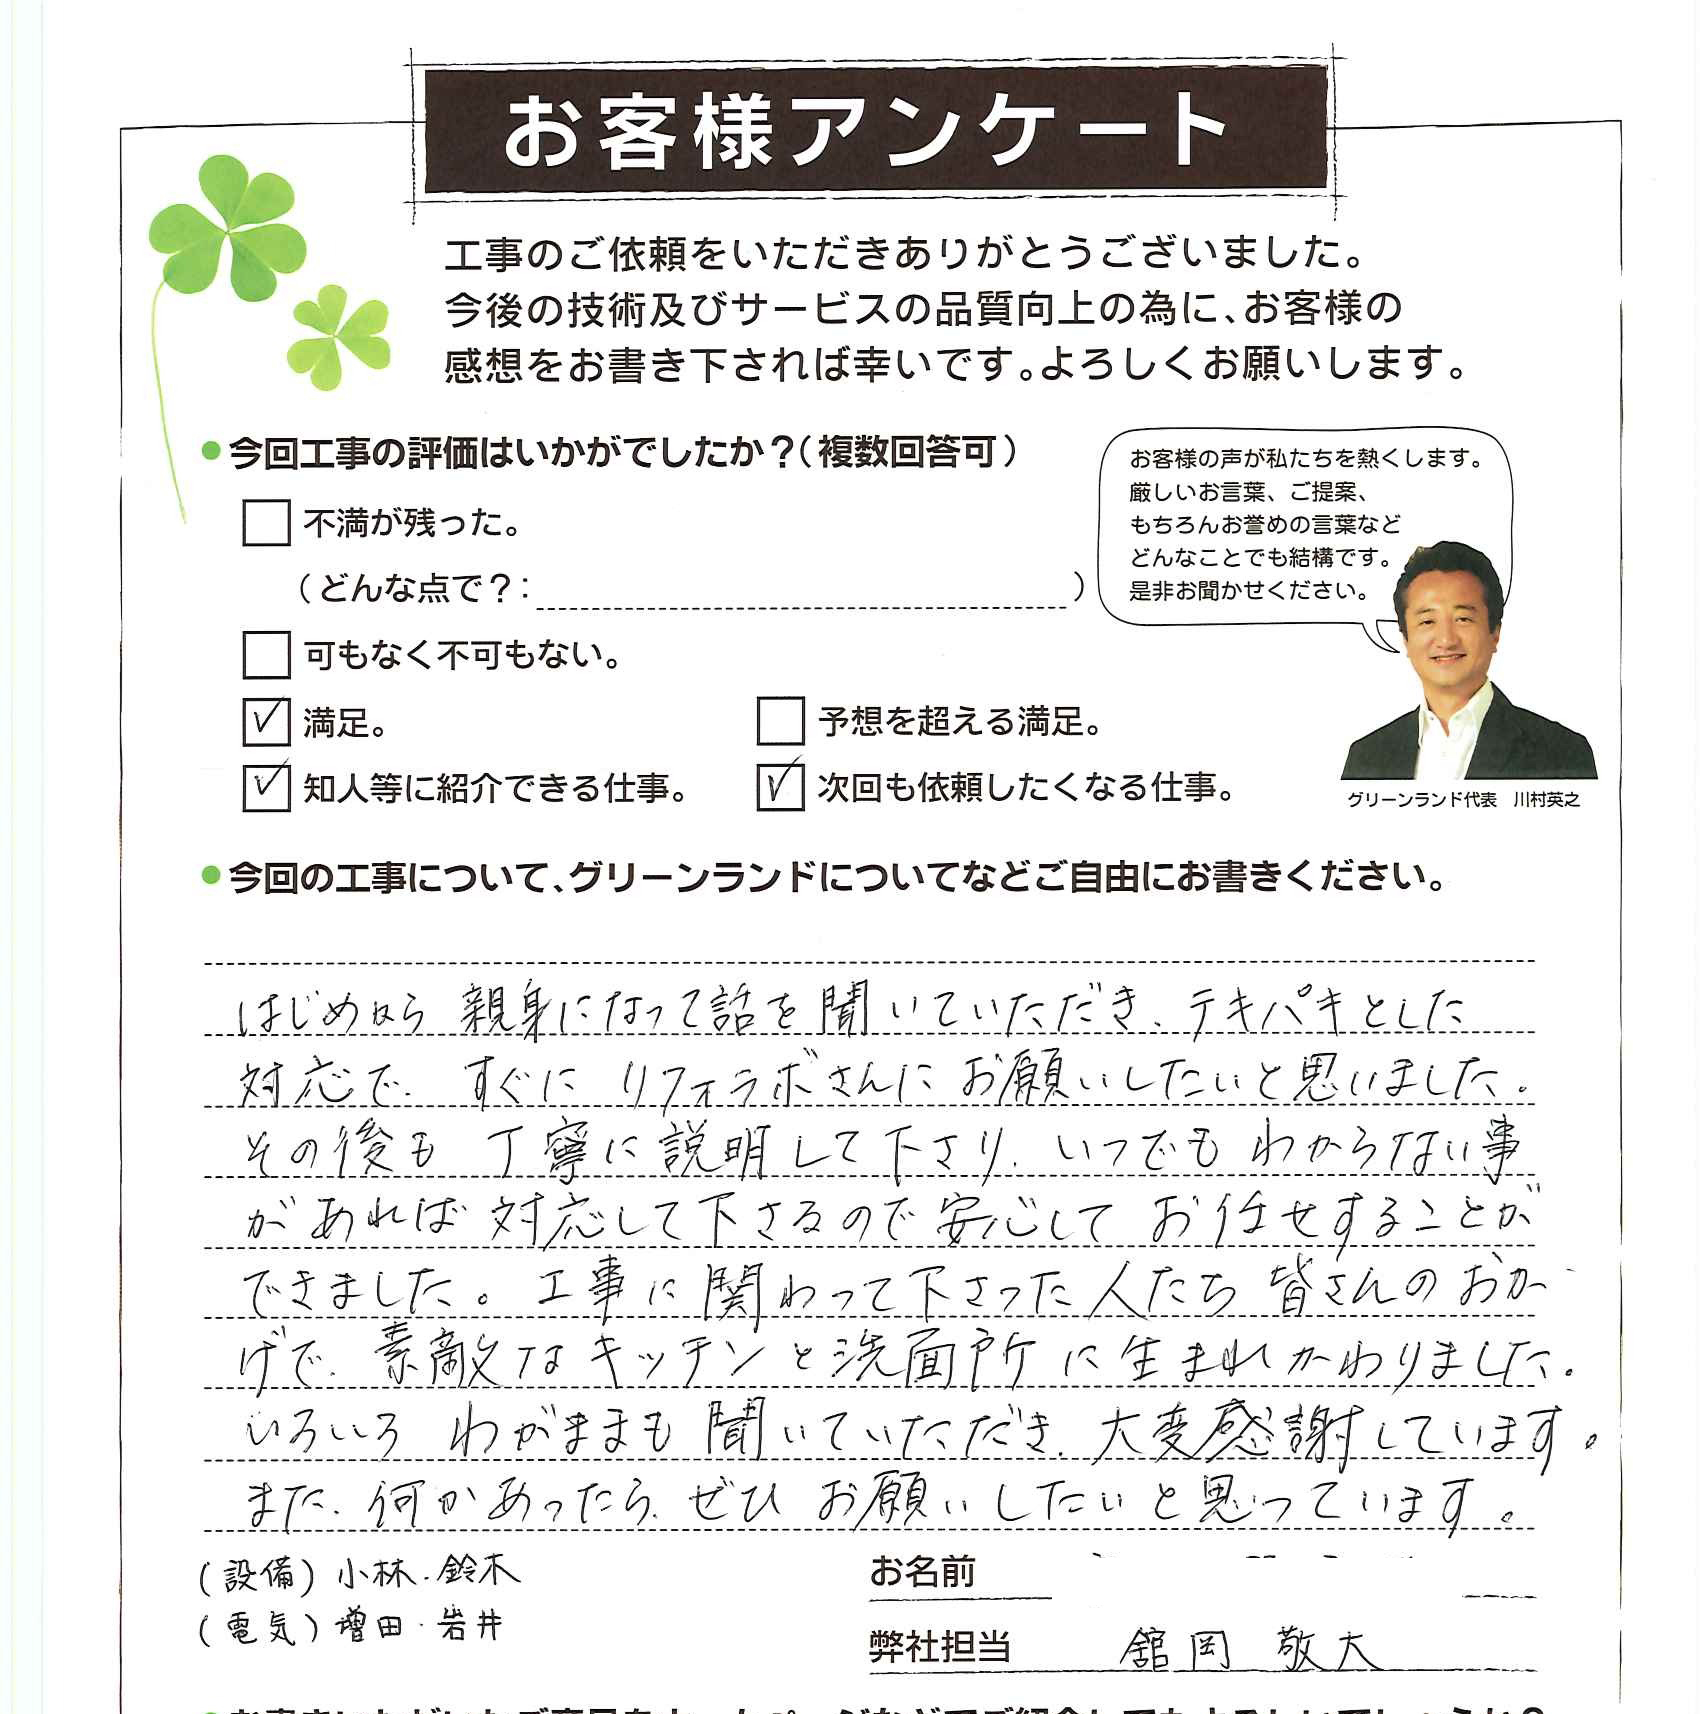 お客様アンケート
工事のご依頼をいただきありがとうございました。
今後の技術及びサービスの品質向上の為に、お客様の
感想をお書き下されば幸いです。よろしくお願いします。
●今回工事の評価はいかがでしたか？（複数回答可）
不満が残った。
（どんな点で？：　）
可もなく不可もない。
満足。
予想を超える満足。
知人等に紹介できる仕事。
次回も依頼したくなる仕事。
お客様の声が私たちを熱くします。
厳しいお言葉、ご提案、
もちろんお誉めの言葉など
どんなことでも結構です。
是非お聞かせください。
グリーンランド代表　川村英之
●今回の工事について、グリーンランドについてなどご自由にお書きください。
はじめから 親身になって話を聞いていただき、テキパキとした
対応で、すぐに リフォラボさんに お願いしたいと思いました。
その後も 丁寧に説明して下さり、いつでも わからない事
があれば 対応して下さるので安心して お任せすることが
できました。工事に関わって下さった人たち 皆さんの おか
げで、素敵なキッチンと洗面所に生まれかわりました。
いろいろ わがままも 聞いていただき、大変感謝しています。
また、何かあったら、ぜひ お願いしたいと思っています。
(設備) 小林・鈴木
(電気) 増田・岩井
お名前
弊社担当　舘岡 敬大